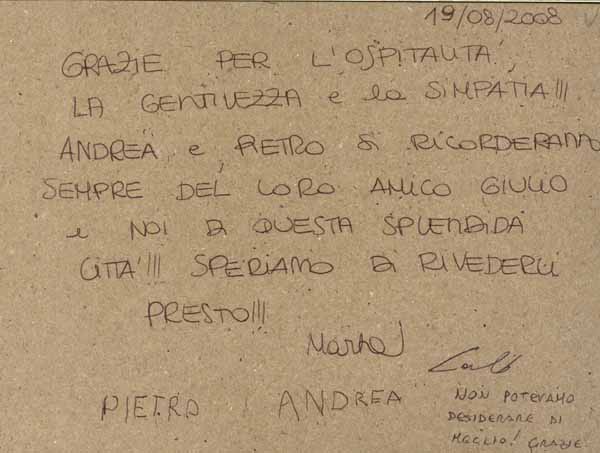 19/08/2008
GRAZIE PER L'OSPITALITÀ,
LA GENTILEZZA e la SIMPATIA!!!
ANDREA e PIETRO SI RICORDERANNO
SEMPRE DEL LORO AMICO GIULIO
e NOI DI QUESTA SPLENDIDA
CITTÀ!!! SPERIAMO DI RIVEDERCI
PRESTO!!!
PIETRO ANDREA
NON POTEVAMO
DESIDERARE DI
MEGLIO! GRAZIE.